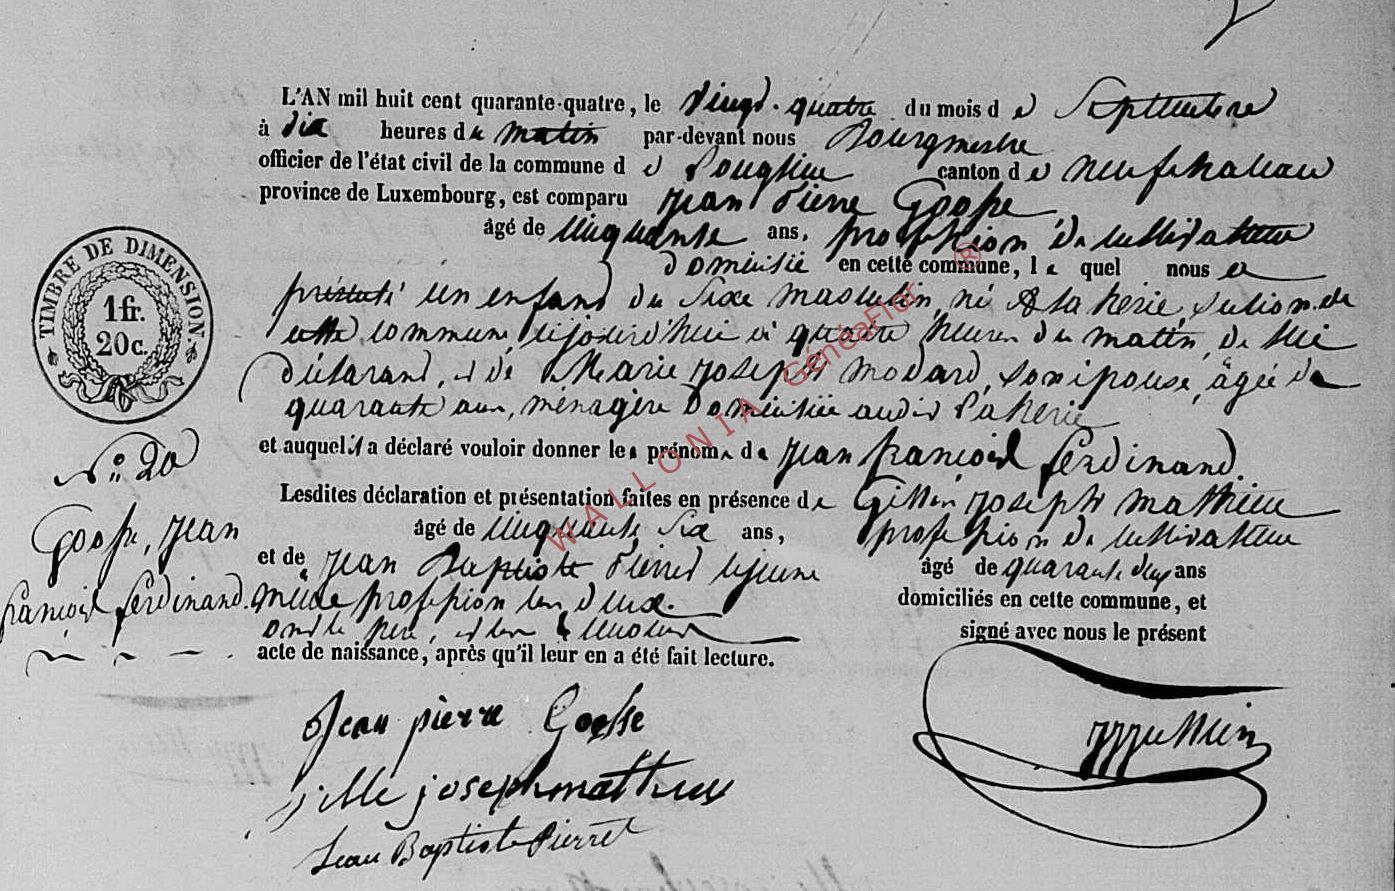 L'AN mil huit cent quarante-quatre, le vingt-quatre du mois de Septembre
à dix heures du matin par-devant nous Bourgmestre
officier de l'état civil de la commune de Longlier canton de neufchateau
province de Luxembourg, est comparu Jean Pierre Goosse
âgé de cinquante ans, profession de cultivateur
domicilié en cette commune, le quel nous a
présenté un enfand du sixe masculin, né à la herie, section de
cette commune, cejourd'hui à quatre heures du matin, de lui
déclarand, et de Marie Joseph modard, son épouse, âgée de
quarante ans, ménagère domiciliée audit laherie
et auquel il a déclaré vouloir donner les prénoms de Jean françois ferdinand.
Lesdites déclaration et présentation faites en présence de Gille Joseph Mathieu
âgé de cinquante six ans, profession de cultivateur
et de Jean Baptiste Pierret âgé de quarante deux ans
même profession tous deux. domiciliés en cette commune, et
ont le père, et les témoins signé avec nous le présent
acte de naissance, après qu'il leur en a été fait lecture.
TIMBRE DE DIMENSION.
1 fr.
20 c.
N° 20
Goosse, Jean
françois ferdinand.
Jean pierre Goosse
gille joseph mathieu
Jean Baptiste Pierret
WALLONIA GénéaFlor ®